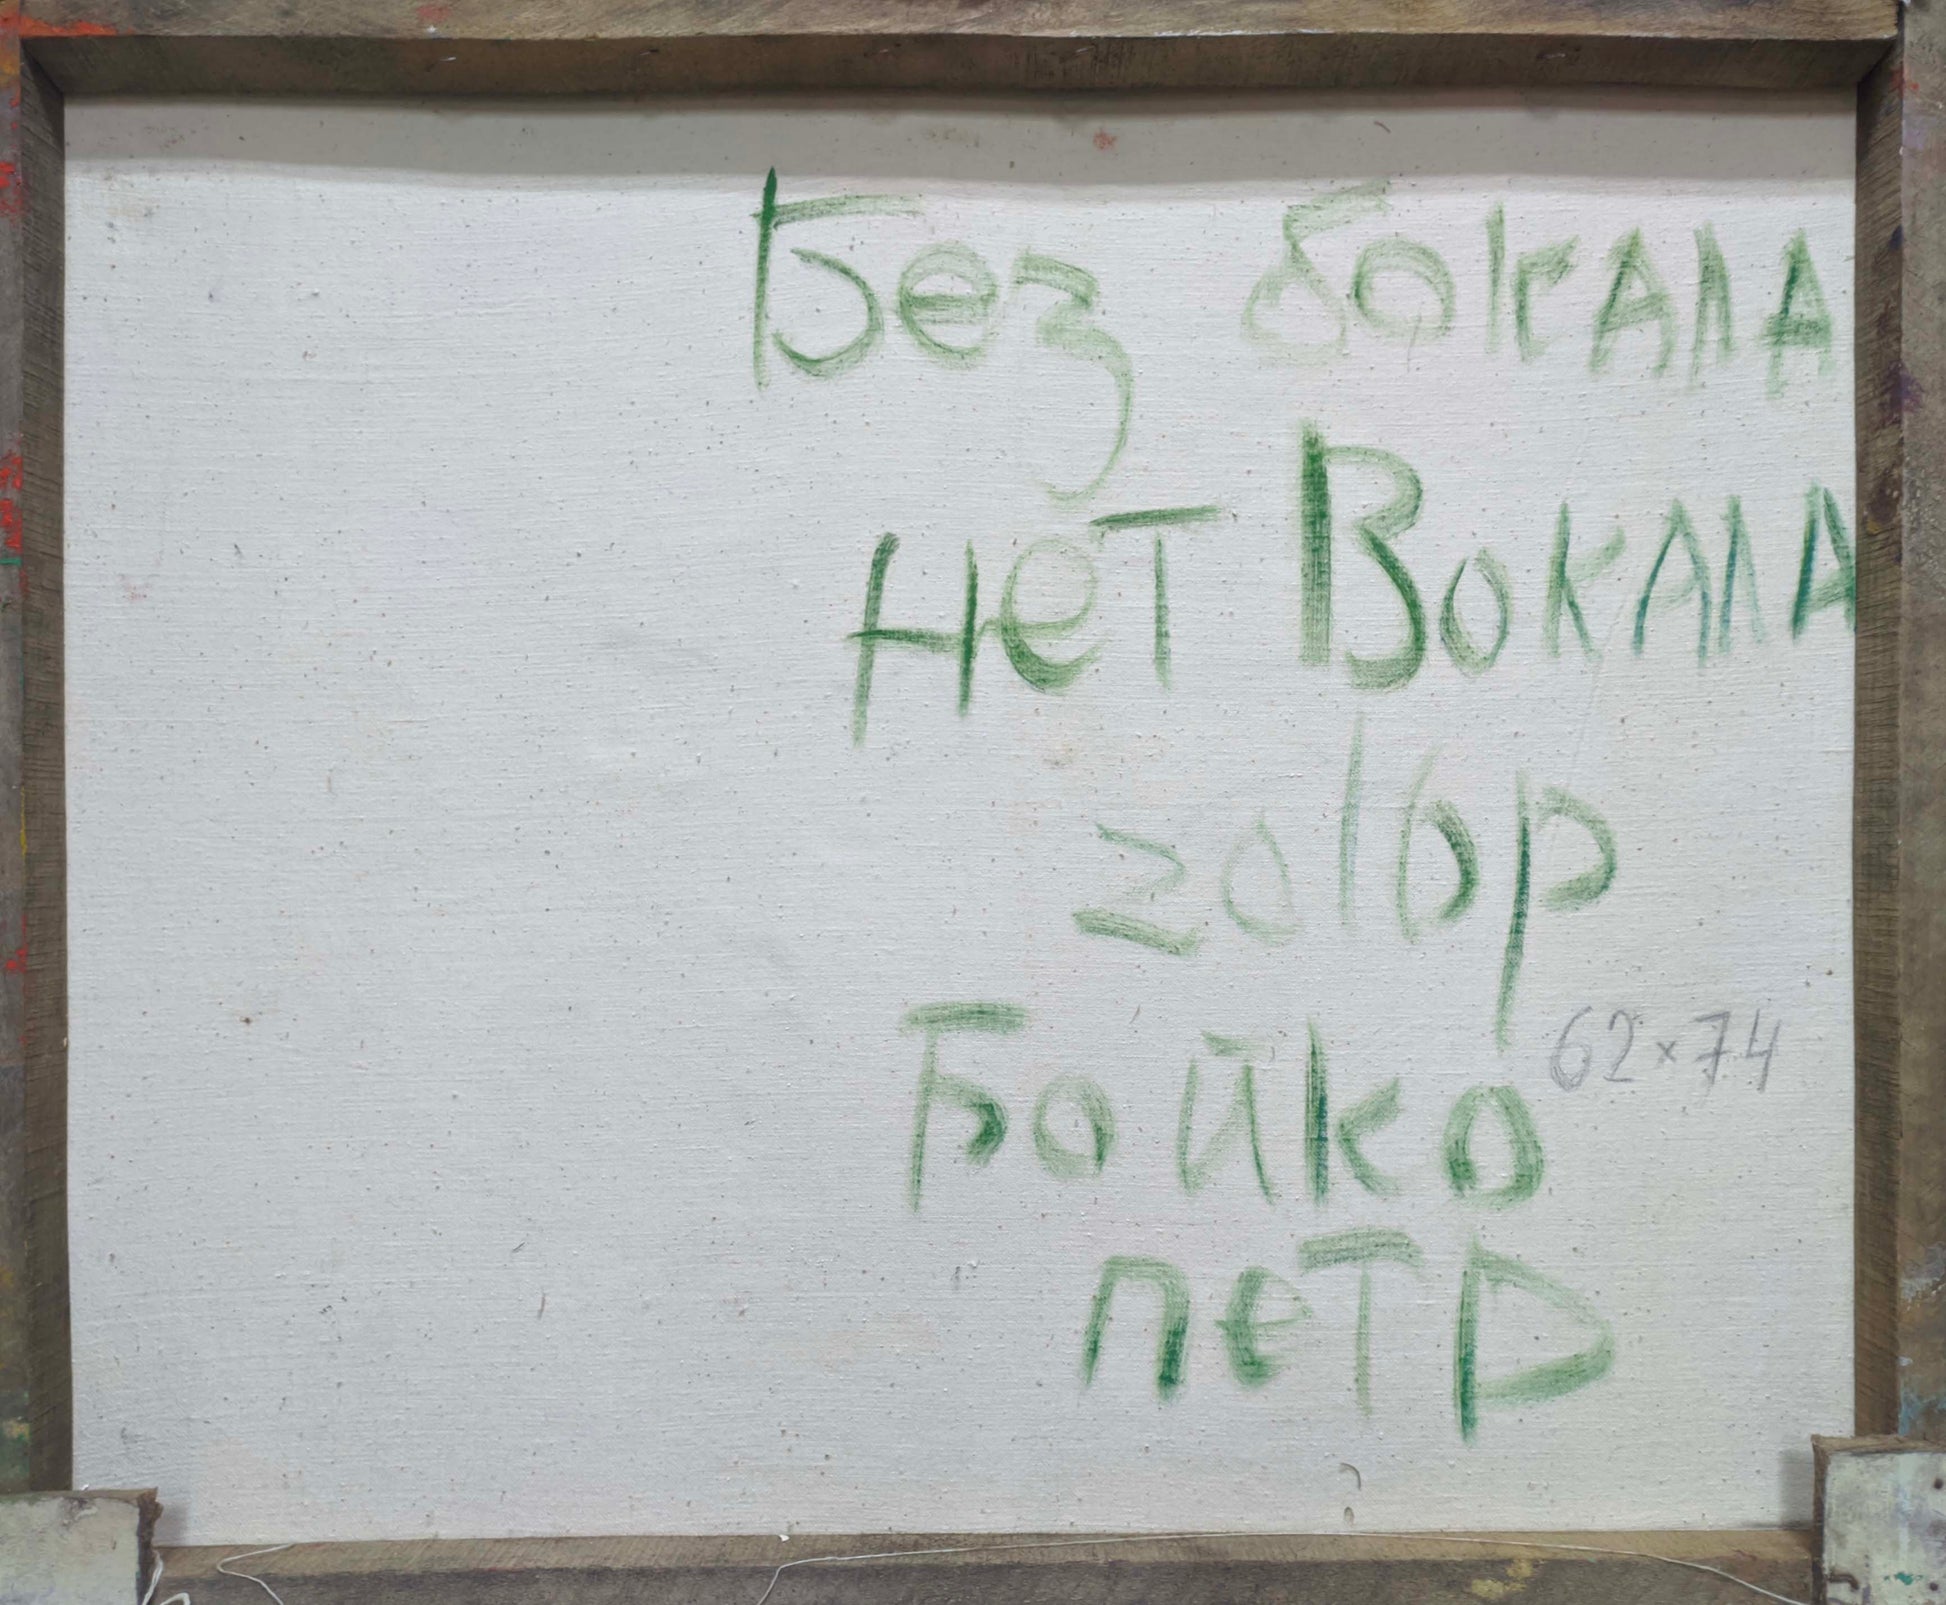 Без бокала
нет Вокала
201бр
62×74
Бойко
петр